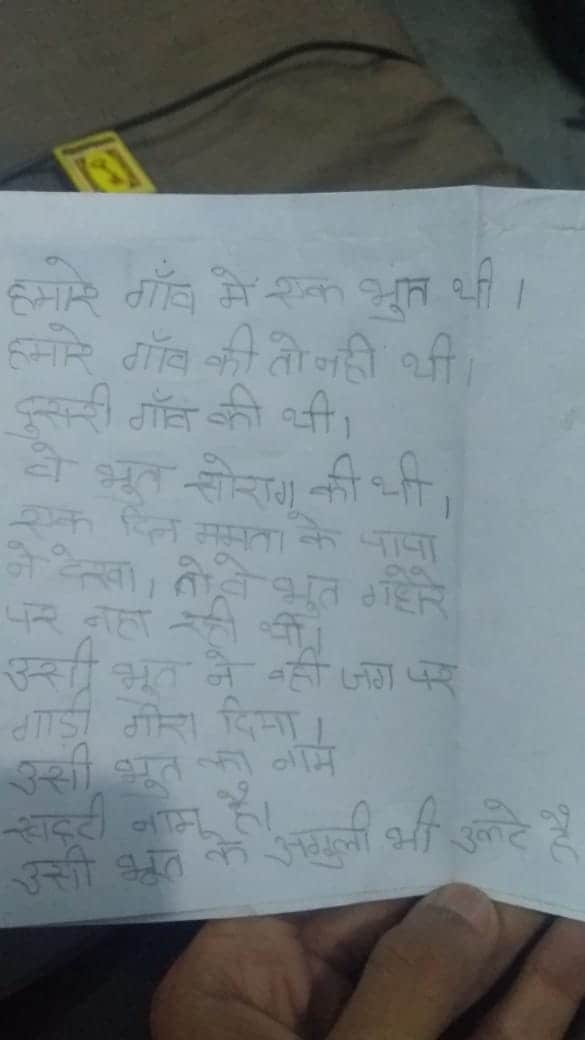 हमारे गाँव में एक भुत थी।
हमारे गाँव की तो नही थी।
दुसरी गाँव की थी।
वो भुत सोराग की थी।
एक दिन ममता के पापा
ने देखा। तो वे भुत गहरे
पर नहा रही थी।
उसी भुत ने वही जग पर
गाड़ी गीरा दिया।
उसी भुत का नाम
नाम है।
उसी भुत के अगुली भी उलटे है